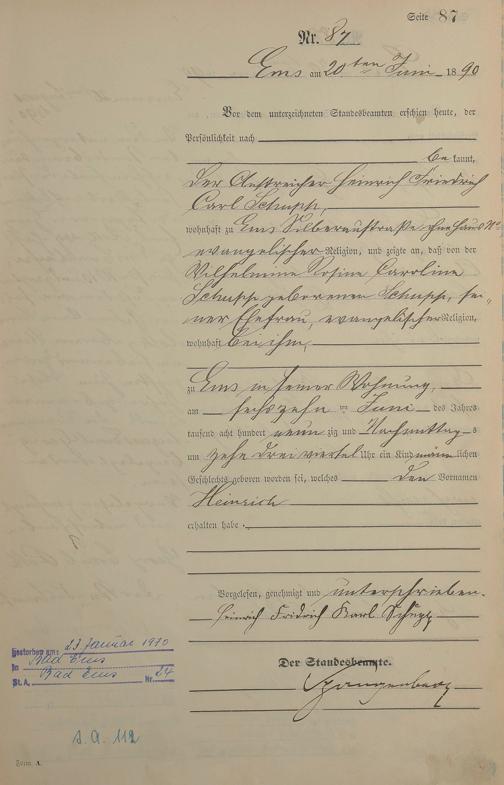 Seite 87
Nr. 87
Ems am 20ten Juni 1890
Vor dem unterzeichneten Standesbeamten erschien heute, der
Persönlichkeit nach
bekannt,
der Anstreicher Heinrich Friedrich
Carl Schupp,
wohnhaft zu Ems Silberaustraße ohne Haus No
evangelischer Religion, und zeigte an, daß von der
Wilhelmine Rosine Caroline
Schupp geborenen Schupp, sei-
ner Ehefrau, evangelischer Religion,
wohnhaft bei ihm,
zu Ems in seiner Wohnung,
am sechszehn ten Juni des Jahres
tausend acht hundert neunzig und Nachmittags
um zehn drei viertel Uhr ein Kind männlichen
Geschlechts geboren worden sei, welches den Vornamen
Heinrich
erhalten habe.
Vorgelesen, genehmigt und unterschrieben.
Heinrich Fridrich Karl Schupp
Der Standesbeamte.
Spangenberg
Gestorben am: 23. Januar 1970
in Bad Ems
St. A. Bad Ems Nr. 24
s. A. 112
Form. A.